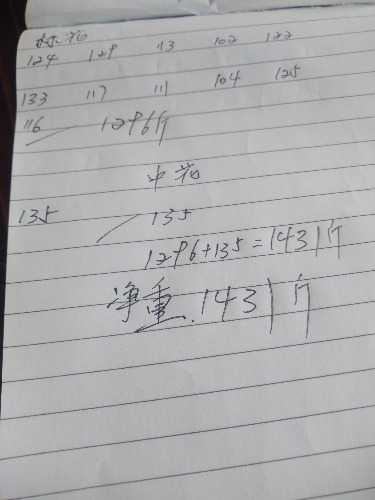 124 129 113 102 122
133 117 111 104 125
116 1296斤
135 135
1296+135=1431斤
净重.1431斤